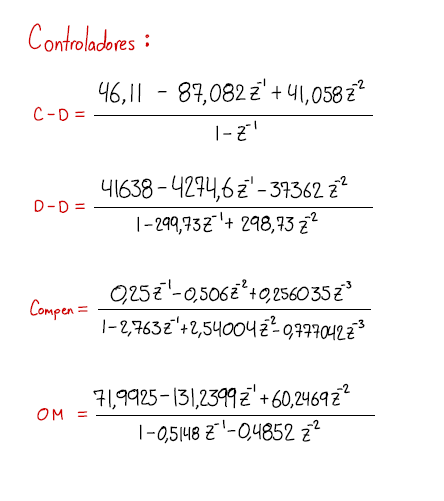 Controladores :
46,11 - 87,082 z⁻¹ + 41,058 z⁻²
C-D =
1 - z⁻¹
41638 - 4274,6 z⁻¹ - 37362 z⁻²
D-D =
1 - 299,73 z⁻¹ + 298,73 z⁻²
0,25 z⁻¹ - 0,506 z⁻² + 0,256035 z⁻³
Compen =
1 - 2,763 z⁻¹ + 2,54004 z⁻² - 0,777042 z⁻³
71,9925 - 131,2399 z⁻¹ + 60,2469 z⁻²
OM =
1 - 0,5148 z⁻¹ - 0,4852 z⁻²